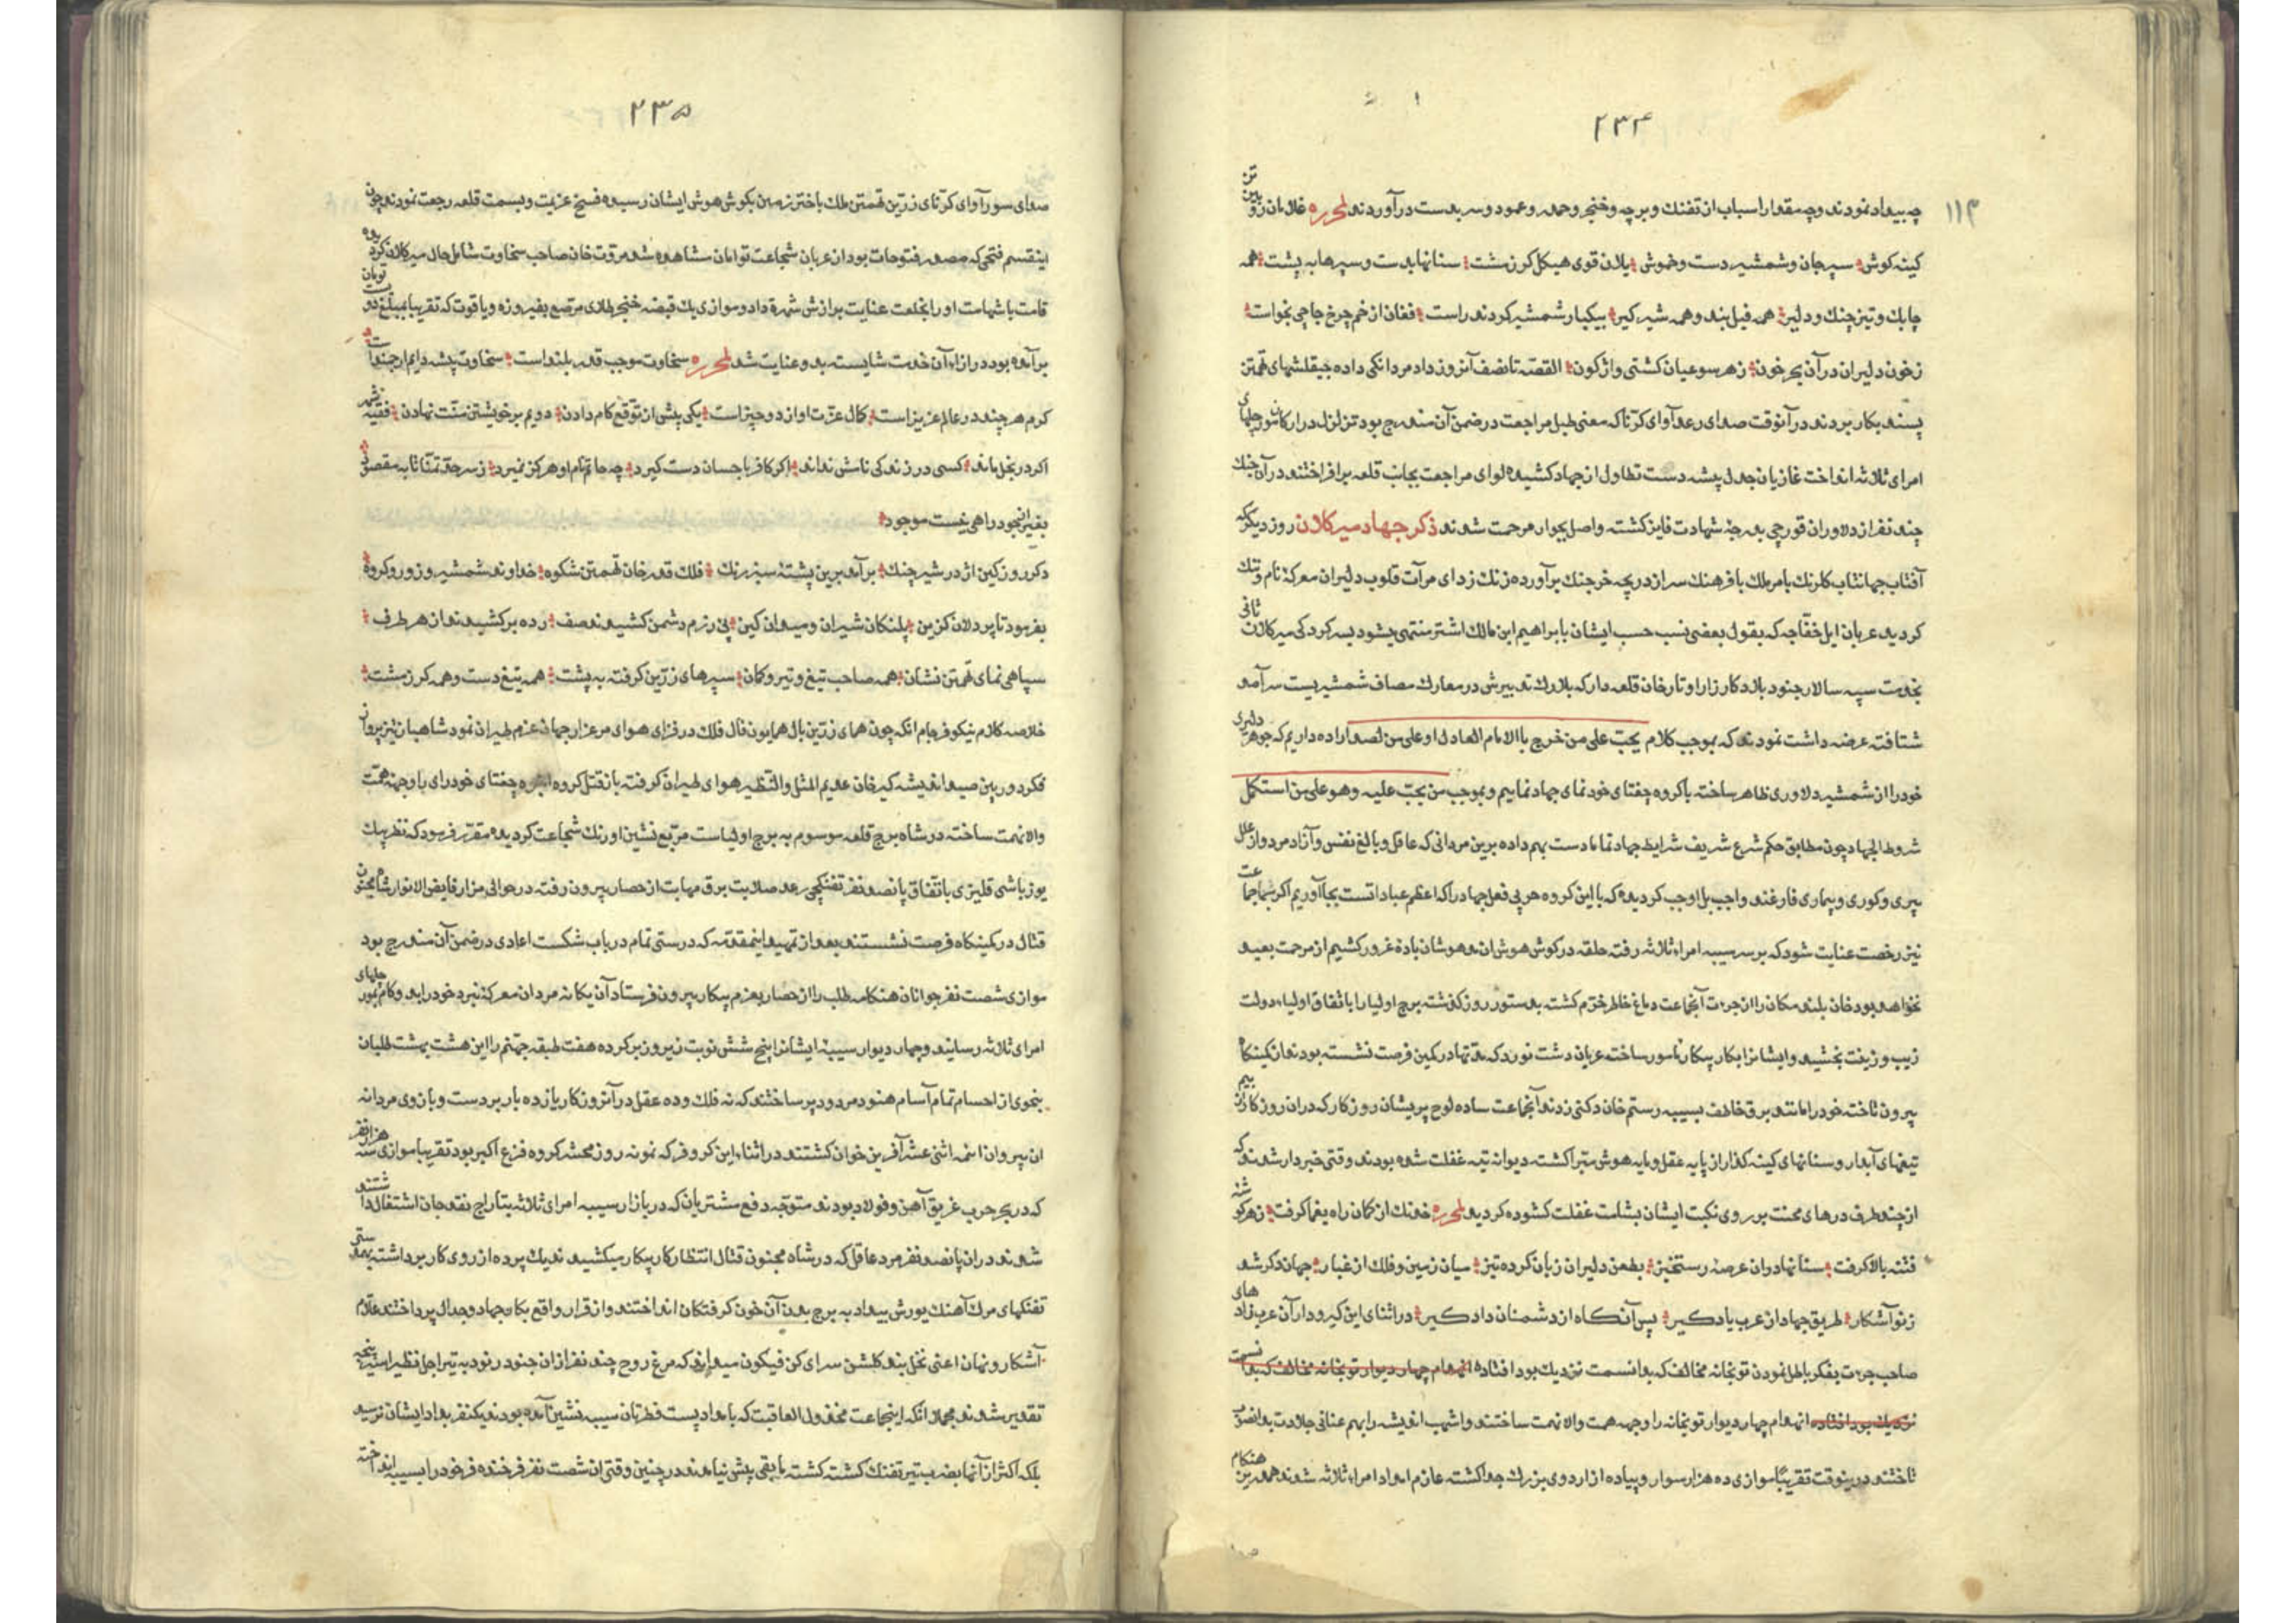 ۲۳۴
۱۱۳
چه بیداد نمودند وچه مقدار اسباب از تفنك و برچه وخنجر و وعمود وسر بدست درآوردند لمحرره غلامان
کینه کوش سپرجان وشمشیر دست وخموش یلان قوی هیکل کرزمشت سنانها بدست و سپرها به پشت همه
چابك وتیز چنك و دلیر همه فیل بند وهمه شیر کیر بیکبار شمشیر کردند راست فغان از خم چرخ چاچی بخواست
زخون دلیران در آن بحر خون زهر سو عیان کشتی واژکون القصه تا نصف آنروز داد مردانکی داده جیقلشهای تهمتن
پسند بکار بردند در آنوقت صدای رعد آوای کرنا که معنی طبل مراجعت در ضمن آن مندرج بود تزلزل در ارکان
امرای ثلاثه انداخت غازیان جدل پیشه دست تطاول از جهاد کشیده لوای مراجعت بجانب قلعه برافراختند در آن جنك
چند نفر از دلاوران قورچی بدرجه شهادت فایز کشته واصل بجوار مرحمت شدند ذکر جهاد میر کلان روز دیکر که
آفتاب جهانتاب کلرنك بامر ملك بافرهنك سر از دریچه خرچنك برآورده زنك زدای مرآت قلوب دلیران معرکه نام وننك
کردید عربان ایل خفاجه که بقول بعضی نسب حسب ایشان بابراهیم ابن مالك اشتر منتهی میشود بسرکردکی میر کلان ثانی
بخدمت سپه سالار جنود بلاد کارزار اوتارخان قلعه دار که بلارك تدبیرش در معارك مصاف شمشیریست سرآمد
شتافته عرضه داشت نمودند که بموجب کلام یجب علی من خرج باالامام العادل او علی من اراده داریم که جوهر دلیری
خود را از شمشیر دلاوری ظاهر ساخته باکروه چغتای خودنمای جهاد نماییم وبموجب من یجب علیه وهو علی من استکمل
شروط الجهاد چون مطابق حکم شرع شریف شرایط جهاد تماما دست بهم داده برین مردانی که عاقل وبالغ نفس وآزاد مرد واز علل
پیری وکوری و بیماری فارغند واجب بل اوجب کردیده که با این کروه حربی فعل جهاد را که اعظم عباداتست بجا آوریم اکر بماجماعت
نیز رخصت عنایت شود که بر سر سیبه امراء ثلاثه رفته حلقه در کوش هوش ان مدهوشان باده غرور کشیم از مرحمت بعید
نخواهد بود خان بلند مکان را از جرءت آنجماعت دماغ خاطر خرم کشته بدستور روز کذشته برج اولیا را باتفاق اولیاء دولت
زیب وزینت بخشید وایشانرا بکار پیکار مامور ساخته عربان دشت نورد که مدتها در کمین فرصت نشسته بودند از کمینکاه
بیرون تاخته خود را مانند برق خاطف بسیبه رستم خان دکنی زدند آنجماعت ساده لوح پریشان روزکار که دران روز کار از بیم
تیغهای آبدار وسنانهای کینه کذار از پایه عقل ومایه هوش مبرا کشته دیوانه تیه غفلت شده بودند وقتی خبردار شدند که
از چند طرف درهای محنت بر روی نکبت ایشان بشامت غفلت کشوده کردید لمحرره خدنك از کمان راه یغما کرفت زهر کوشه
فتنه بالا کرفت سنانها دران عرصه رستخیز بطعن دلیران زبان کرده تیز میان زمین وفلك از غبار جهان دکر شد
زنو آشکار طریق جهاد از عرب یاد کیر پس آنکاه از دشمنان داد کیر در اثنای این کیرودار آن عرب زاد های
صاحب جرءت بفکر باطل نمودن توپخانه مخالف که بدانسمت نزدیك بود افتاده انهدام چهار دیوار توپخانه مخالف که بدانسمت
نزدیك بود افتاده انهدام چهار دیوار توپخانه را وجهه همت والانهمت ساختند واشهب اندیشه را بهم عنانی جلادت بدانصوب
تاختند درینوقت تقریبا موازی ده هزار سوار وپیاده از اردوی بزرك جدا کشته عازم امداد امراء ثلاثه شدند همدرین هنکام
۲۳۵
صدای سورآوای کرنای زرین تهمتن ملك باختر زمین بکوش هوش ایشان رسیده فسخ عزیمت وبسمت قلعه رجعت نمودند چون
اینقسم فتحی که مصدر فتوحات بود از عربان شجاعت توامان مشاهده شد مروت خان صاحب سخاوت شامل حال میر کلان کرد
قامت باشهامت او را بخلعت عنایت برازش شهره داد وموازی یك قبضه خنجر طلای مرصع بفیروزه ویاقوت که تقریبا بمبلغ دویست تومان
برآمده بود در ازاء آن خدمت شایسته بدو عنایت شد لمحرره سخاوت موجب قدر بلند است سخاوت پیشه دایم ارجمند است
کرم هر چند در عالم عزیز است کمال عزت او از دو چیز است یکی پیش از توقع کام دادن دویم بر خویشتن منت نهادن فقیر
اکر در بخل ماند کسی در زندکی نامش نداند اکر کافر باحسان دست کیرد چه حاتم نام او هرکز نمیرد زسرحد تمنا تا به مقصود
بغیر از جود راهی نیست موجود
دکر روز کین اژدر شیر چنك برآمد برین پشته سبز رنك فلك قدر خان تهمتن شکوه خداوند شمشیر وزور وکروه
بفرمود تا پردلان کزین پلنکان شیران ومیدان کین پی رزم دشمن کشیدند صف رده برکشیدند از هر طرف
سپاهی نمای تهمتن نشان همه صاحب تیغ وتیر وکمان سپرهای زرین کرفته به پشت همه تیغ دست وهمه کرزمشت
خلاصه کلام نیکو فرجام انکه چون همای زرین بال همایون فال فلك در فزای هوای مرغزار جهان عزم طیران نمود شاهباز تیز پرواز
فکر دوربین صید اندیشه کیر خان عدیم المثل والنظیر هوای طیران کرفته باز قتل کروه انبوه چغتای خودرای را وجهه همت
والانهمت ساخته در شاه برج قلعه موسوم به برج اولیاست مربع نشین اورنك شجاعت کردیده مقرر فرمود که نظر بیك
یوزباشی قلیزی باتفاق پانصد نفر تفنکچی رعد صلابت برق مهابت از حصار بیرون رفته در حوالی مزار فایض الانوار شاه مجنون
قتال در کمینکاه فرصت نشستند بعد از تمهید اینمقدمه که درستی تمام در باب شکست اعادی در ضمن آن مندرج بود
موازی شصت نفر جوانان هنکامه طلب را از حصار بعزم پیکار بیرون فرستاد آن یکانه مردان معرکه نبرد خود را بدو کام
امرای ثلاثه رسانید وچهار دیوار سیبه ایشانرا پنج شش نوبت زیر وزبر کرده هفت طبقه جهنم را این هشت بهشت طلبان
بنحوی از اجسام تمام آسام هنود مردود پر ساختند که نه فلك وده عقل در آنروز کار یازده بار بر دست وبازوی مردانه
ان پیروان ائمه اثنی عشر آفرین خوان کشتند در اثناء این کروفر که نمونه روز محشر کروه فزع اکبر بود تقریبا موازی سه هزار نفر
که در بحر حرب غریق آهن وفولاد بودند متوجه دفع مشتریان که در بازار سیبه امرای ثلاثه بتاراج نقد جان اشتغال داشتند
شدند دران پانصد نفر مرد عاقل که در شاه مجنون قتال انتظار کار پیکار میکشیدند یك پرده از روی کار برداشته
تفنکهای مرك آهنك یورش بیداد به برج بدن آن خون کرفتکان انداختند واز قرار واقع بکار جهاد وجدال پرداختند علام
آشکار ونهان اعنی نخل بند کلشن سرای کن فیکون میداند که مرغ روح چند نفر از ان جنود رنود به تیر اجل
تقدیر شدند مجملا انکه اینجماعت مخذول العاقبت که بامداد پست فطرتان سیبه نشین آمده بودند یکنفر بداد ایشان نرسید
بلکه اکثر از آنها بضرب تیر تفنك کشته کشته مابقی پیش نیامدند در چنین وقتی ان شصت نفر فرخنده فر خود را بسیبه انداخته